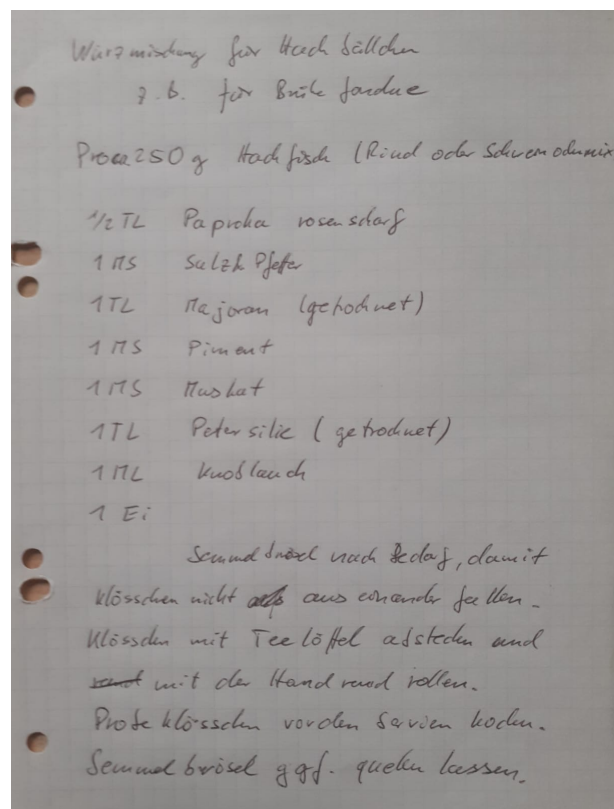 Würzmischung für Hackbällchen
z.B. für Brühfondue
Pro ca 250 g Hackfisch (Rind oder Schweinodermix
1/2 TL Paprika rosenscharf
1 MS Salz & Pfeffer
1 TL Majoran (getrocknet)
1 MS Piment
1 MS Muskat
1 TL Petersilie (getrocknet)
1 ML Knoblauch
1 Ei
Semmelbrösel nach Bedarf, damit
Klösschen nicht aus einander fallen.
Klösschen mit Teelöffel abstecken und
mit der Hand rund rollen.
Probeklösschen vor den Servieren kochen.
Semmelbrösel ggf. quellen lassen.